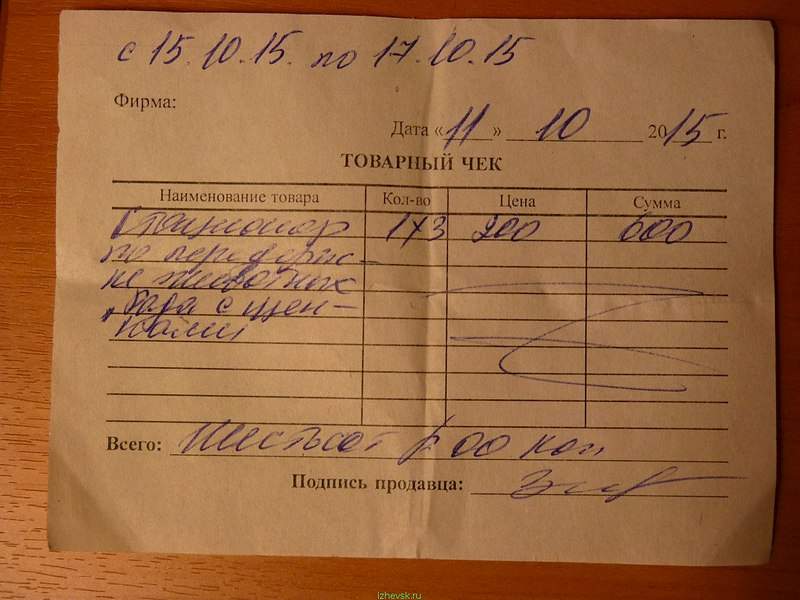 с 15.10.15. по 17.10.15
Фирма:
Дата «11» 10 2015 г.
ТОВАРНЫЙ ЧЕК
Наименование товара Кол-во Цена Сумма
Стационар 1х3 200 600
по передерж-
ке животных
с щен-
ками
Всего: Шестьсот р 00 коп
Подпись продавца:
izhevsk.ru